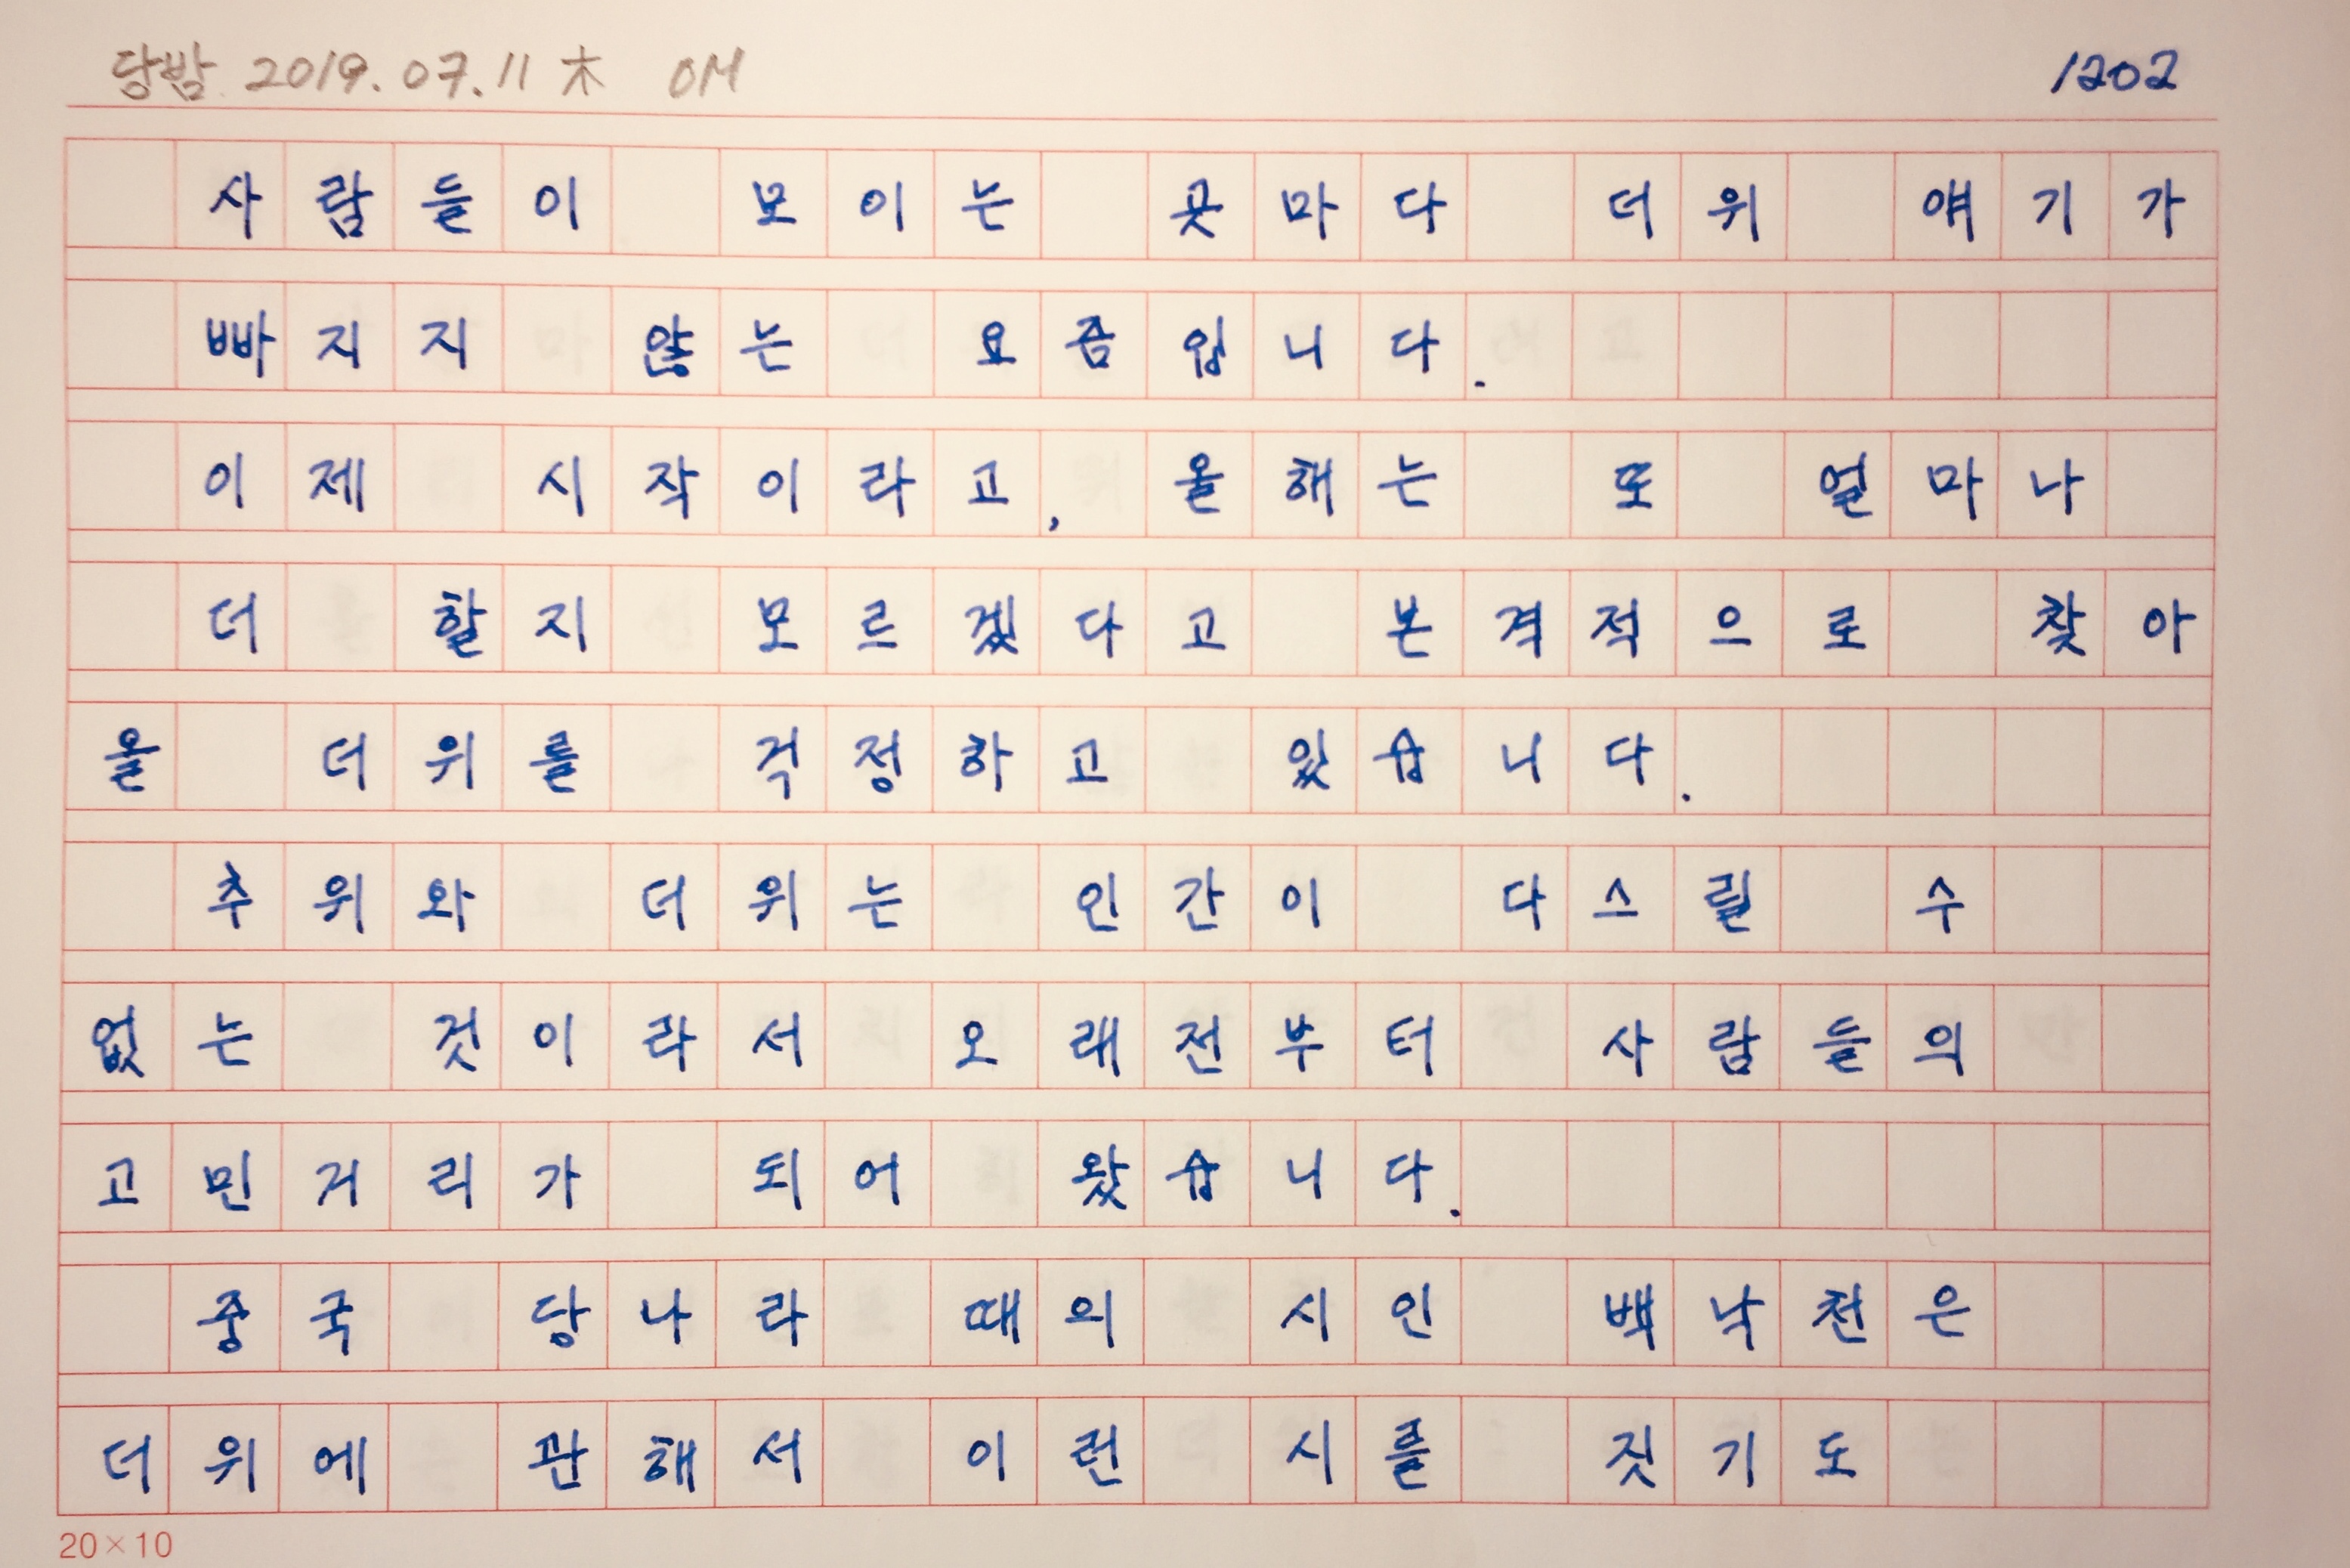 당밤 2019.07.11 木 OM 1202
사람들이 모이는 곳마다 더위 얘기가
빠지지 않는 요즘입니다.
이제 시작이라고, 올해는 또 얼마나
더 할지 모르겠다고 본격적으로 찾아
올 더위를 걱정하고 있습니다.
추위와 더위는 인간이 다스릴 수
없는 것이라서 오래전부터 사람들의
고민거리가 되어 왔습니다.
중국 당나라 때의 시인 백낙천은
더위에 관해서 이런 시를 짓기도
20×10